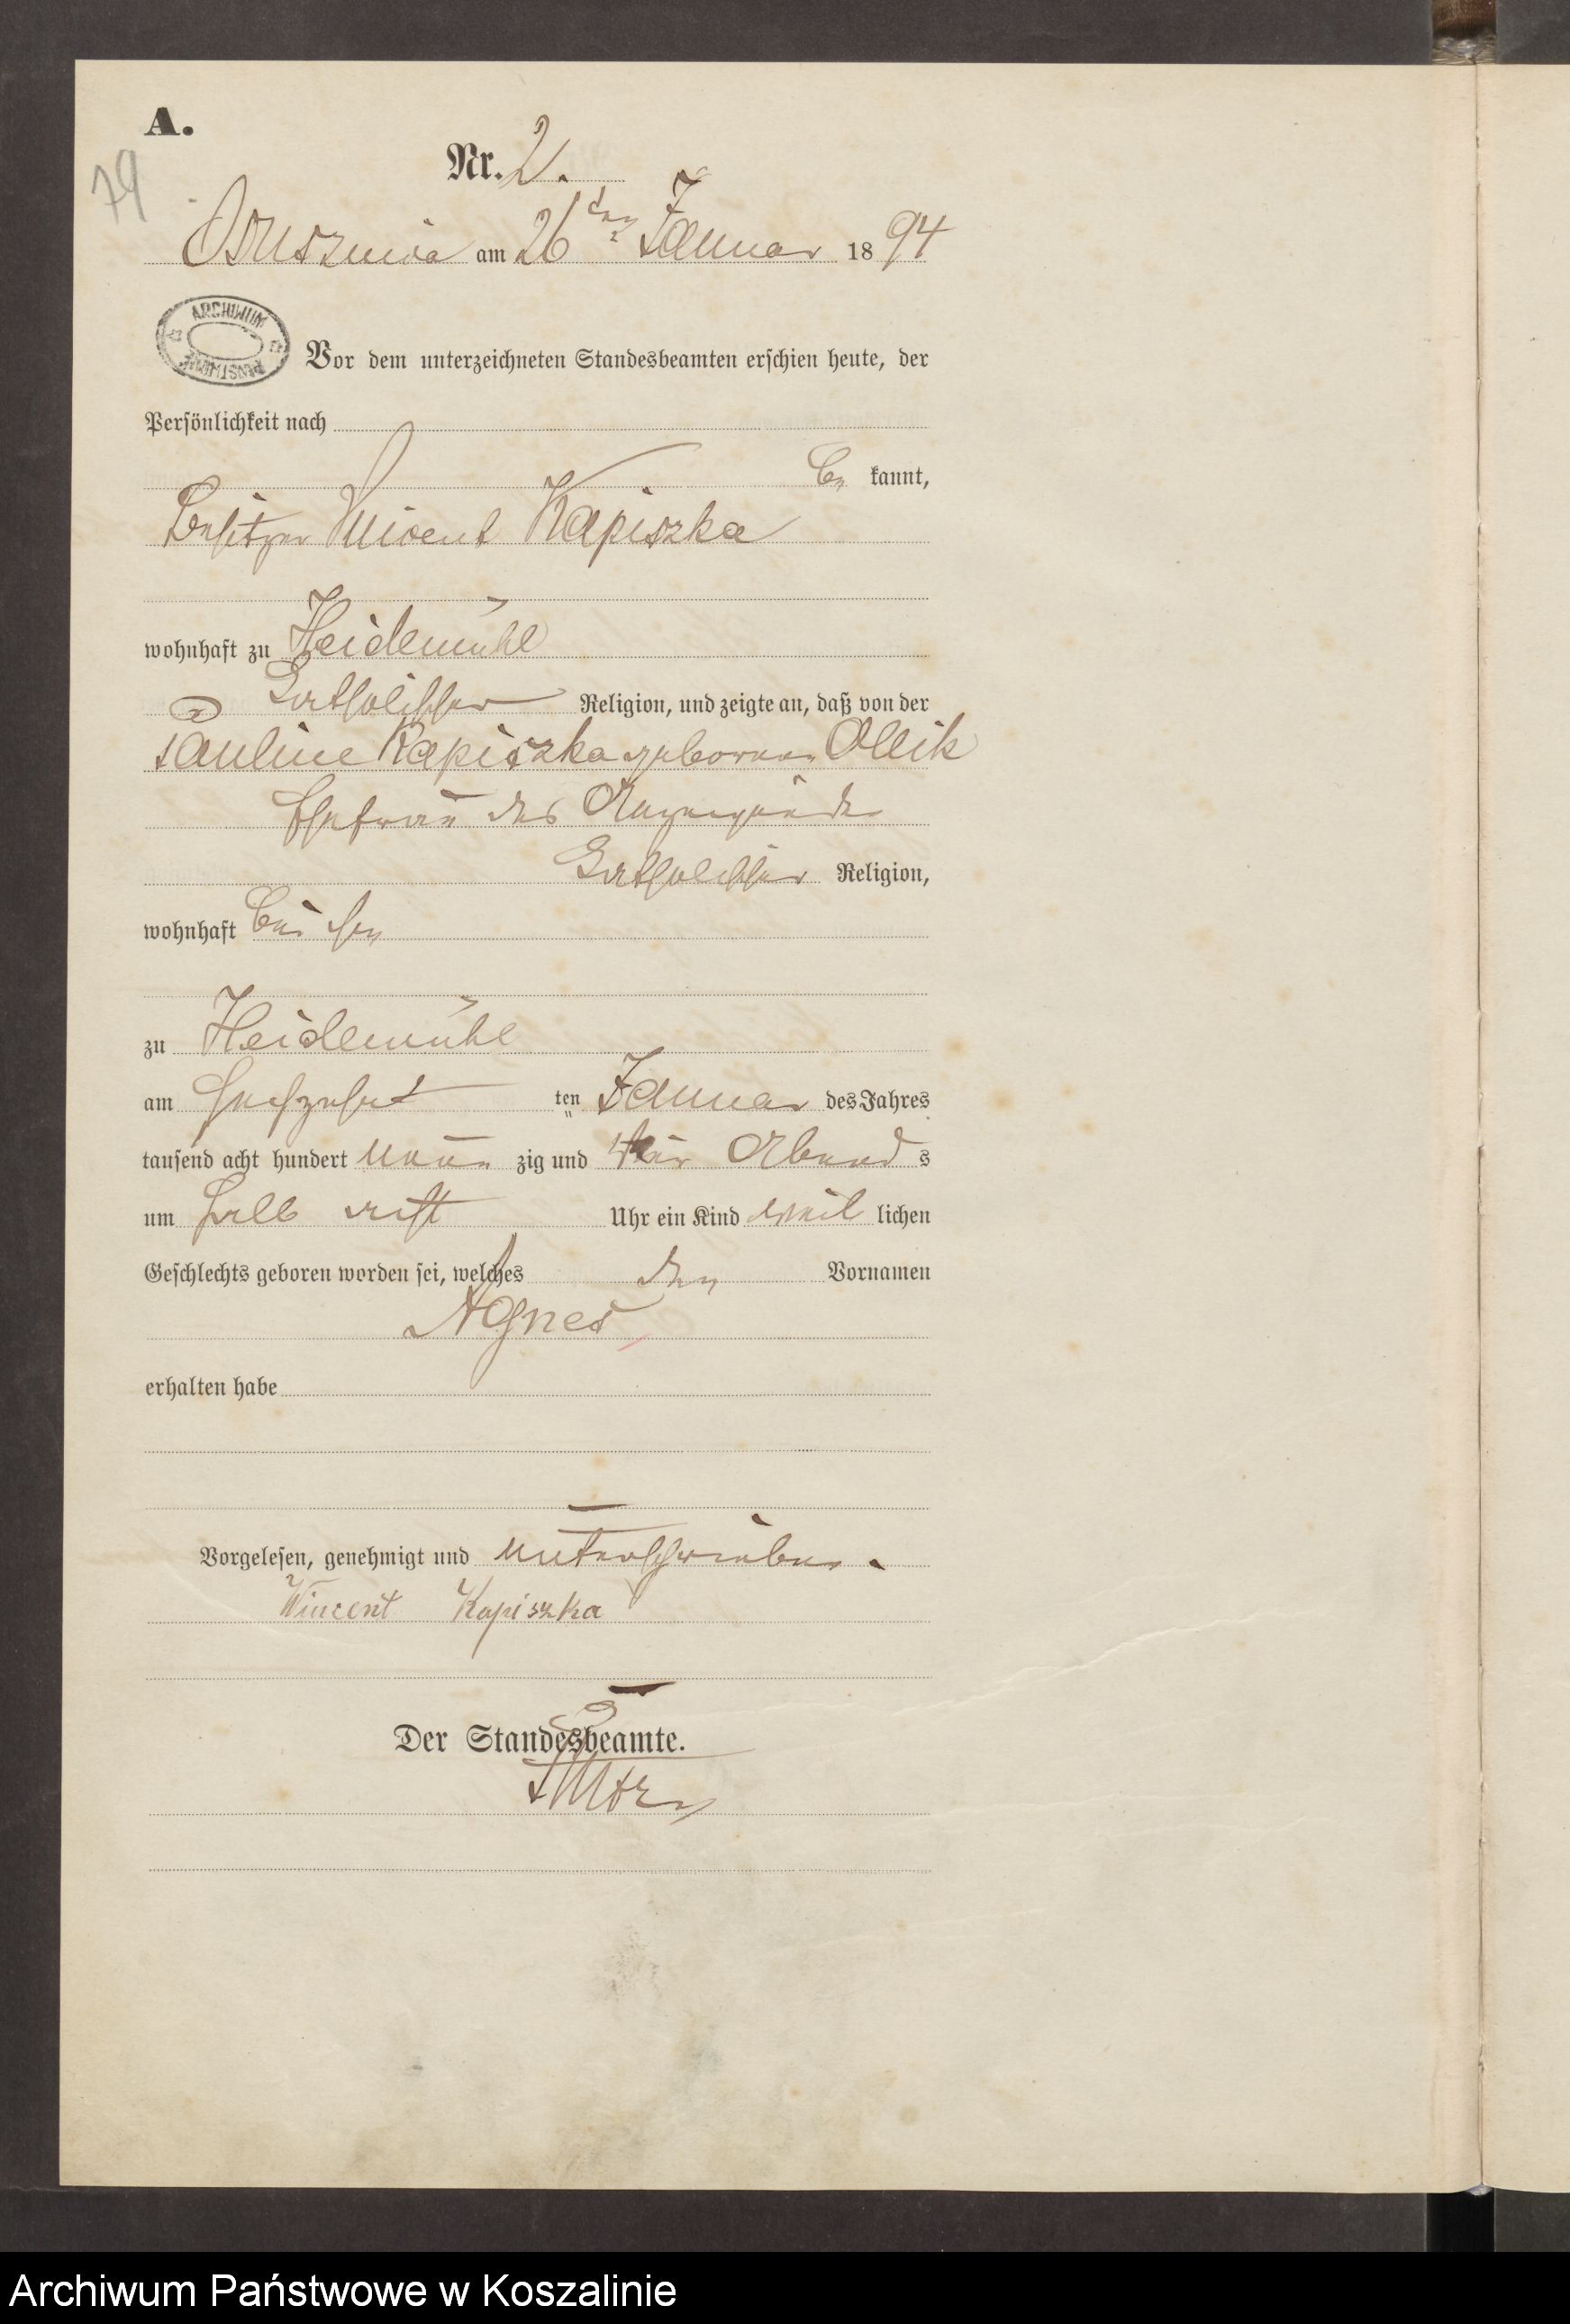 A.
79
Nr. 2.
Osusznica am 26ten Januar 1894
ARCHIWUM
PAŃSTWOWE
Vor dem unterzeichneten Standesbeamten erschien heute, der
Persönlichkeit nach
be kannt,
Besitzer Vincent Kapiszka
wohnhaft zu Heidemühl
katholischer Religion, und zeigte an, daß von der
Pauline Kapiszka geborenen Ollik
Ehefrau des Anzeigenden
katholischer Religion,
wohnhaft bei ihm
zu Heidemühl
am sechzehnt ten Januar des Jahres
tausend acht hundert neun zig und vier Abend s
um halb acht Uhr ein Kind weib lichen
Geschlechts geboren worden sei, welches den Vornamen
Agnes
erhalten habe
Vorgelesen, genehmigt und unterschrieben.
Wincent Kapiszka
Der Standesbeamte.
Archiwum Państwowe w Koszalinie